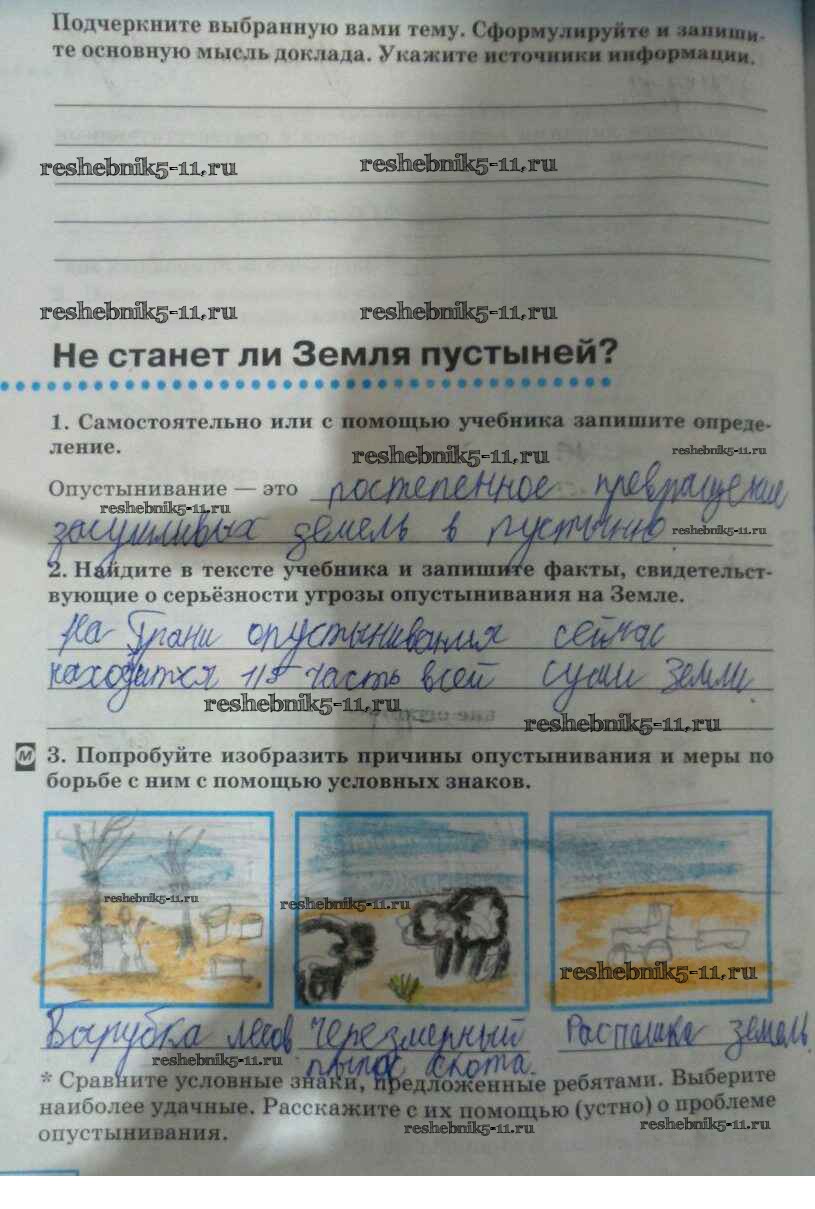 Подчеркните выбранную вами тему. Сформулируйте и запиши-
те основную мысль доклада. Укажите источники информации.
reshebnik5-11.ru reshebnik5-11.ru
reshebnik5-11.ru reshebnik5-11.ru
Не станет ли Земля пустыней?
1. Самостоятельно или с помощью учебника запишите опреде-
ление.
reshebnik5-11.ru reshebnik5-11.ru
Опустынивание — это постепенное превращение
reshebnik5-11.ru
засушливых земель в пустынню reshebnik5-11.ru
2. Найдите в тексте учебника и запишите факты, свидетельст-
вующие о серьёзности угрозы опустынивания на Земле.
На грани опустынивания сейчас
находится 1/5 часть всей суши Земли
reshebnik5-11.ru reshebnik5-11.ru
М 3. Попробуйте изобразить причины опустынивания и меры по
борьбе с ним с помощью условных знаков.
reshebnik5-11.ru reshebnik5-11.ru
reshebnik5-11.ru
Вырубка лесов Черезмерный Распашка земель
reshebnik5-11.ru скота.
* Сравните условные знаки, предложенные ребятами. Выберите
наиболее удачные. Расскажите с их помощью (устно) о проблеме
опустынивания.
reshebnik5-11.ru reshebnik5-11.ru